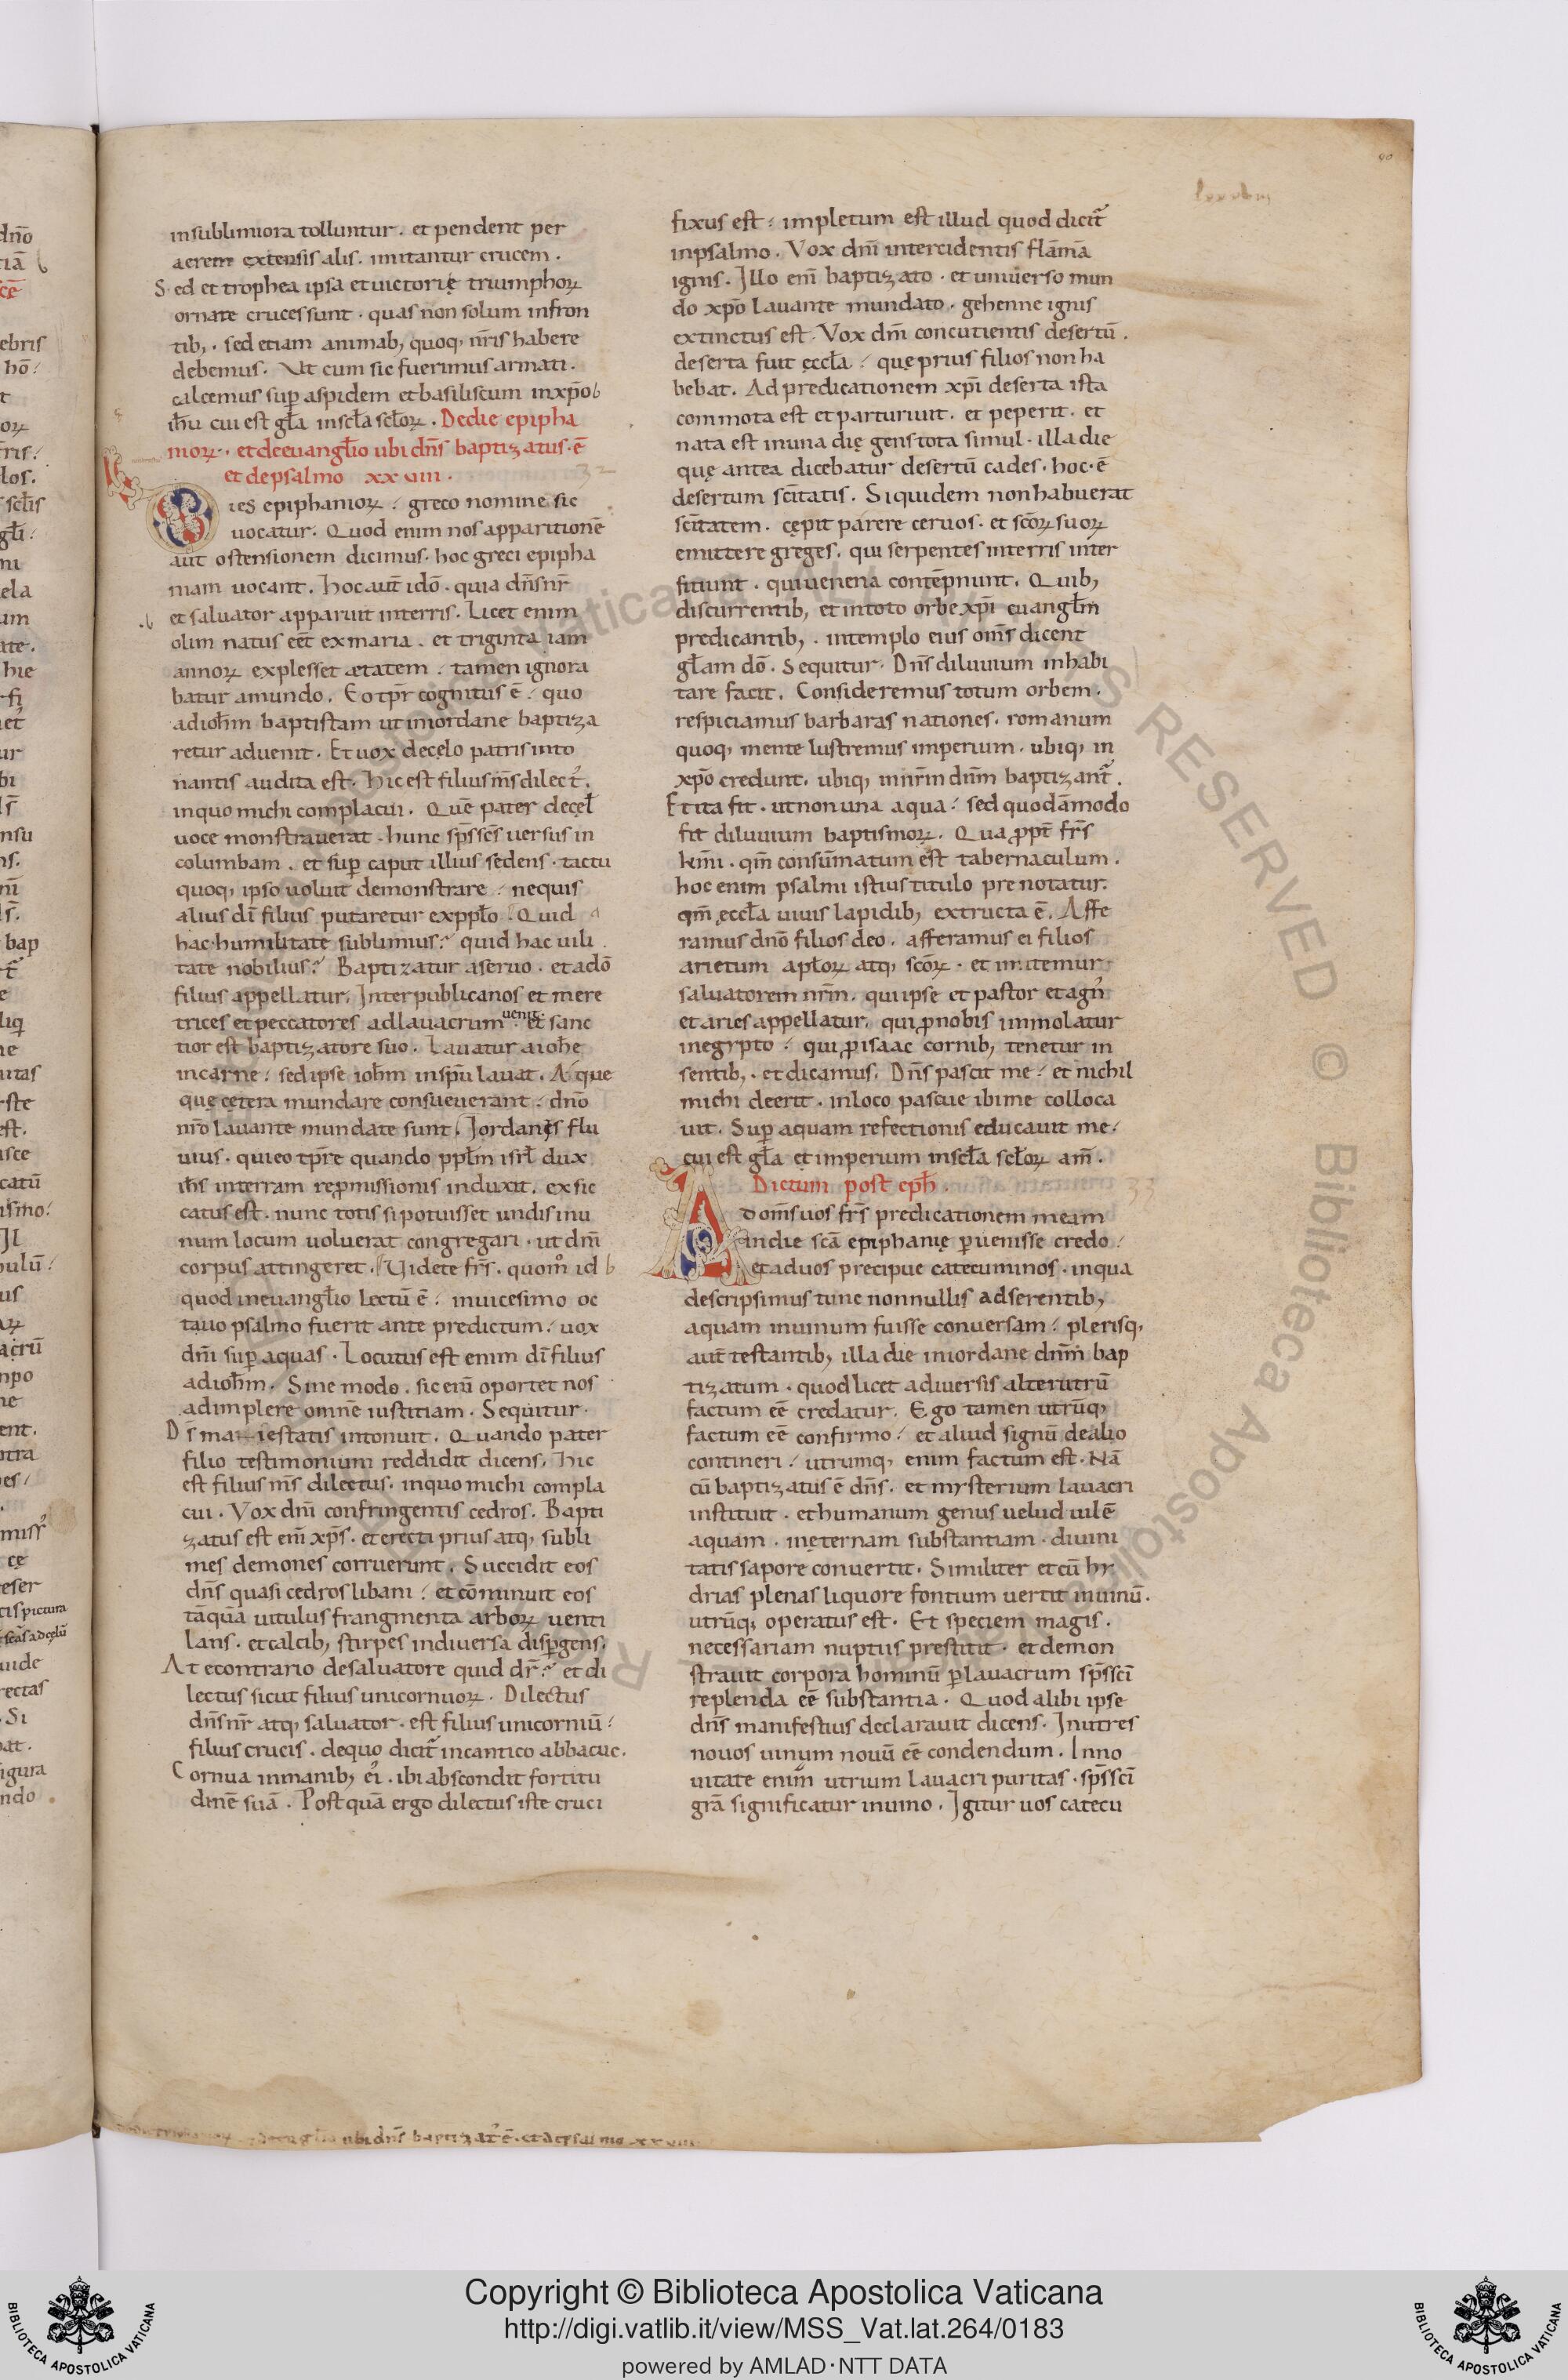 insublimiora tolluntur. et pendent per
aerem extensis alis. imitantur crucem.
Sed et trophea ipsa et uictorię triumphoꝝ
ornate cruces sunt. quas non solum infron
tib;. sed etiam animab; quoq; nr̄is habere
debemus. Vt cum sic fuerimus armati.
calcemus sup̄ aspidem et basiliscum inxp̄o
ih̄u cui est gl̄a insecl̄a secl̄oꝝ. De die epipha
nioꝝ. et de euangl̄io ubi dn̄s baptizatus ē
et de psalmo xxviii.
Dies epiphanioꝝ greco nomine sic
uocatur. Quod enim nos apparitionē
aut ostensionem dicimus. hoc greci epipha
niam uocant. Hoc aut̄ idō. quia dn̄s nr̄
et saluator apparuit interris. Licet enim
olim natus eēt exmaria. et triginta iam
annoꝝ explesset ætatem. tamen ignora
batur amundo. Eo tp̄r cognitus ē. quo
adioh̄m baptistam ut iniordane baptiza
retur aduenit. Et uox decęlo patris into
nantis audita est. Hic est filius m̄s dilect᾿.
inquo michi complacui. Quē pater decęl̄
uoce monstrauerat. hunc sp̄s sc̄s uersus in
columbam. et sup̄ caput illius sedens. tactu
quoq; ipso uoluit demonstrare. nequis
alius dī filius putaretur exppl̄o. Quid
hac humilitate sublimius? quid hac uili
tate nobilius? Baptizatur aseruo. et adō
filius appellatur. Inter publicanos et mere
trices et peccatores adlauacrum uenit. et sanc
tior est baptizatore suo. Lauatur aioh̄e
incarne. sed ipse ioh̄m insp̄u lauat. Aque
quę cętera mundare consueuerant. dn̄o
nr̄o lauante mundate sunt. Iordanes flu
uius. qui eo tp̄re quando ppl̄m isrl̄ dux
ih̄s interram rep̱missionis induxit. exsic
catus est. nunc totis si potuisset undis inu
num locum uoluerat congregari. ut dn̄i
corpus attingeret. Videte fr̄s. quom̊ id
quod ineuangl̄io lectū ē. inuicesimo oc
tauo psalmo fuerit ante predictum. uox
dn̄i sup̄ aquas. Locutus est enim dī filius
adioh̄m. Sine modo. sic eni᷑ oportet nos
adimplere omnē iustitiam. Sequitur.
Ds̄ maiestatis intonuit. Quando pater
filio testimonium reddidit dicens. Hic
est filius m̄s dilectus. inquo michi compla
cui. Vox dn̄i confringentis cedros. Bapti
zatus est eni᷑ xp̄s. et erecti prius atq; subli
mes demones corruerunt. Succidit eos
dn̄s quasi cedros libani. et cōminuit eos
tāquā uitulus frangmenta arboꝝ uenti
lans. et calcib; stirpes indiuersa disp̱gens.
At econtrario desaluatore quid dr̄? et di
lectus sicut filius unicornuoꝝ. Dilectus
dn̄s nr̄ atq; saluator. est filius unicorniū.
filius crucis. dequo dicit᷑ incantico abbacuc.
Cornua inmanib; ei᾿. ibi abscondit fortitu
dinē suā. Post quā ergo dilectus iste cruci
fixus est. impletum est illud quod dicit᷑
inpsalmo. Vox dn̄i intercidentis flāmā
ignis. Illo eni᷑ baptizato. et uniuerso mun
do xp̄o lauante mundato. gehenne ignis
extinctus est. Vox dn̄i concutientis desertū.
deserta fuit ęccl̄a. quę prius filios non ha
bebat. Ad predicationem xp̄i deserta ista
commota est et parturiuit. et peperit. et
nata est inuna dię gens tota simul. illa die
quę antea dicebatur desertū cades. hoc ē
desertum scīttatis. Siquidem non habuerat
scīttatem. cępit parere ceruos. et sc̄oꝝ suoꝝ
emittere greges. qui serpentes interris inter
fitiunt. qui uenena contēpnunt. Quib;
discurrentib; et intoto orbe xp̄i euangl̄m
predicantib;. intemplo eius om̄s dicent
gl̄am dō. Sequitur. Dn̄s diluuium inhabi
tare facit. Consideremus totum orbem.
respiciamus barbaras nationes. romanum
quoq; mente lustremus imperium. ubiq; in
xp̄o credunt. ubiq; innr̄m dnm̄ baptizant᷑.
Et ita fit. ut non una aqua. sed quodāmodo
fit diluuium baptismoꝝ. Qua ꝓpt̄ fr̄s
km̄i. qm̄ consūmatum est tabernaculum.
hoc enim psalmi istius titulo prenotatur.
qm̄ ęccl̄a uiuis lapidib; extructa ē. Affe
ramus dn̄o filios deo. afferamus ei filios
arietum apl̄oꝝ atq; sc̄oꝝ. et imitemur
saluatorem nr̄m. qui ipse et pastor et agn᾿
et aries appellatur. qui ꝓnobis immolatur
inegypto. qui ꝓisaac cornib; tenetur in
sentib;. et dicamus. Dn̄s pascit me. et nichil
michi deerit. inloco pascue ibi me colloca
uit. Sup̄ aquam refectionis educauit me.
cui est gl̄a et imperium insecl̄a secl̄oꝝ am̄.
Dictum post eph̄.
Ad om̄s uos fr̄s predicationem meam
indie scā epiphanię ꝑuenisse credo.
et aduos precipue catecuminos. inqua
descripsimus tunc nonnullis adserentib;
aquam inuinum fuisse conuersam. plerisq;
aut̄ testantib; illa die iniordane dnm̄ bap
tizatum. quod licet adiuersis alterutrū
factum eē credatur. Ego tamen utrūq;
factum eē confirmo. et aliud signū dealio
contineri. utrumq; enim factum est. Nā
cū baptizatus ē dn̄s. et mysterium lauacri
instituit. et humanum genus uelud uilē
aquam. inęternam substantiam. diuini
tatis sapore conuertit. Similiter et cū hy
drias plenas liquore fontium uertit inuinū.
utrūq; operatus est. Et speciem magis.
necessariam nuptiis prestitit. et demon
strauit corpora hominū ꝑlauacrum sp̄s scī
replenda eē substantia. Quod alibi ipse
dn̄s manifestius declarauit dicens. Inutres
nouos uinum nouū eē condendum. Inno
uitate enim utrium lauacri puritas. sp̄s scī
grā significatur inuino. Igitur uos catecu
ubi dn̄s baptizat᾿ ē. et de psalmo xxviii
Copyright © Biblioteca Apostolica Vaticana
http://digi.vatlib.it/view/MSS_Vat.lat.264/0183
powered by AMLAD·NTT DATA
BIBLIOTECA APOSTOLICA VATICANA
BIBLIOTECA APOSTOLICA VATICANA